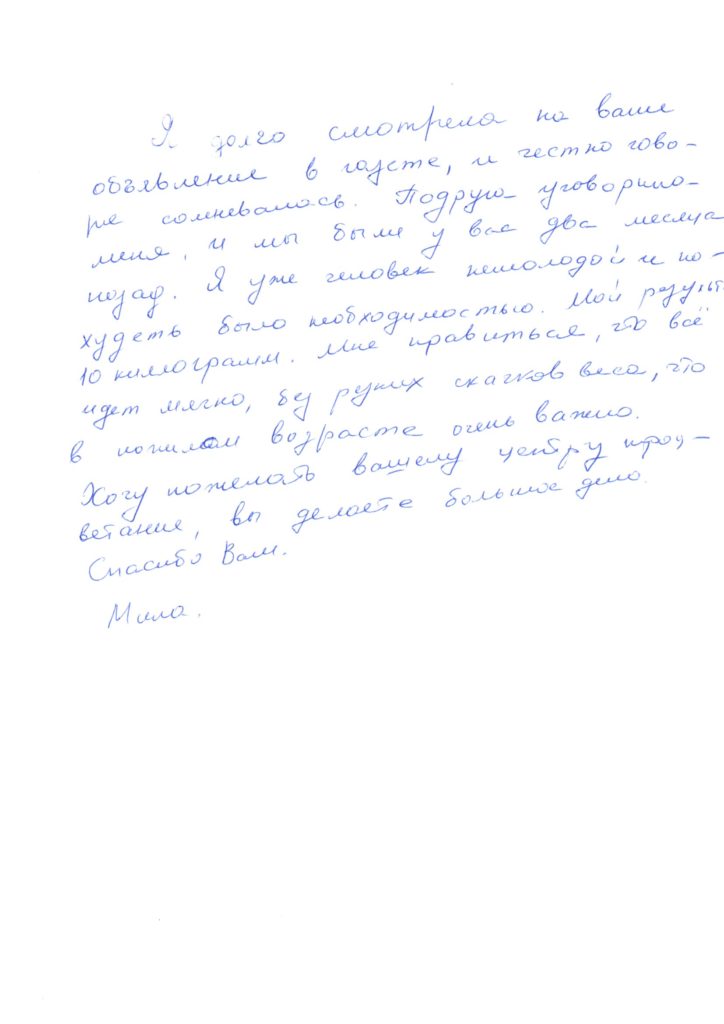 Я долго смотрела на ваше
объявление в газете, и честно гово-
ря сомневалась. Подруга уговорила
меня, и мы были у вас два месяца
назад. Я уже человек немолодой и по-
худеть было необходимостью. Мой результ.
10 килограмм. Мне нравиться, что всё
идет мягко, без резких скачков веса, что
в пожилом возрасте очень важно.
Хочу пожелать вашему центру проц-
ветание, вы делаете большое дело.
Спасибо Вам.
Мила.